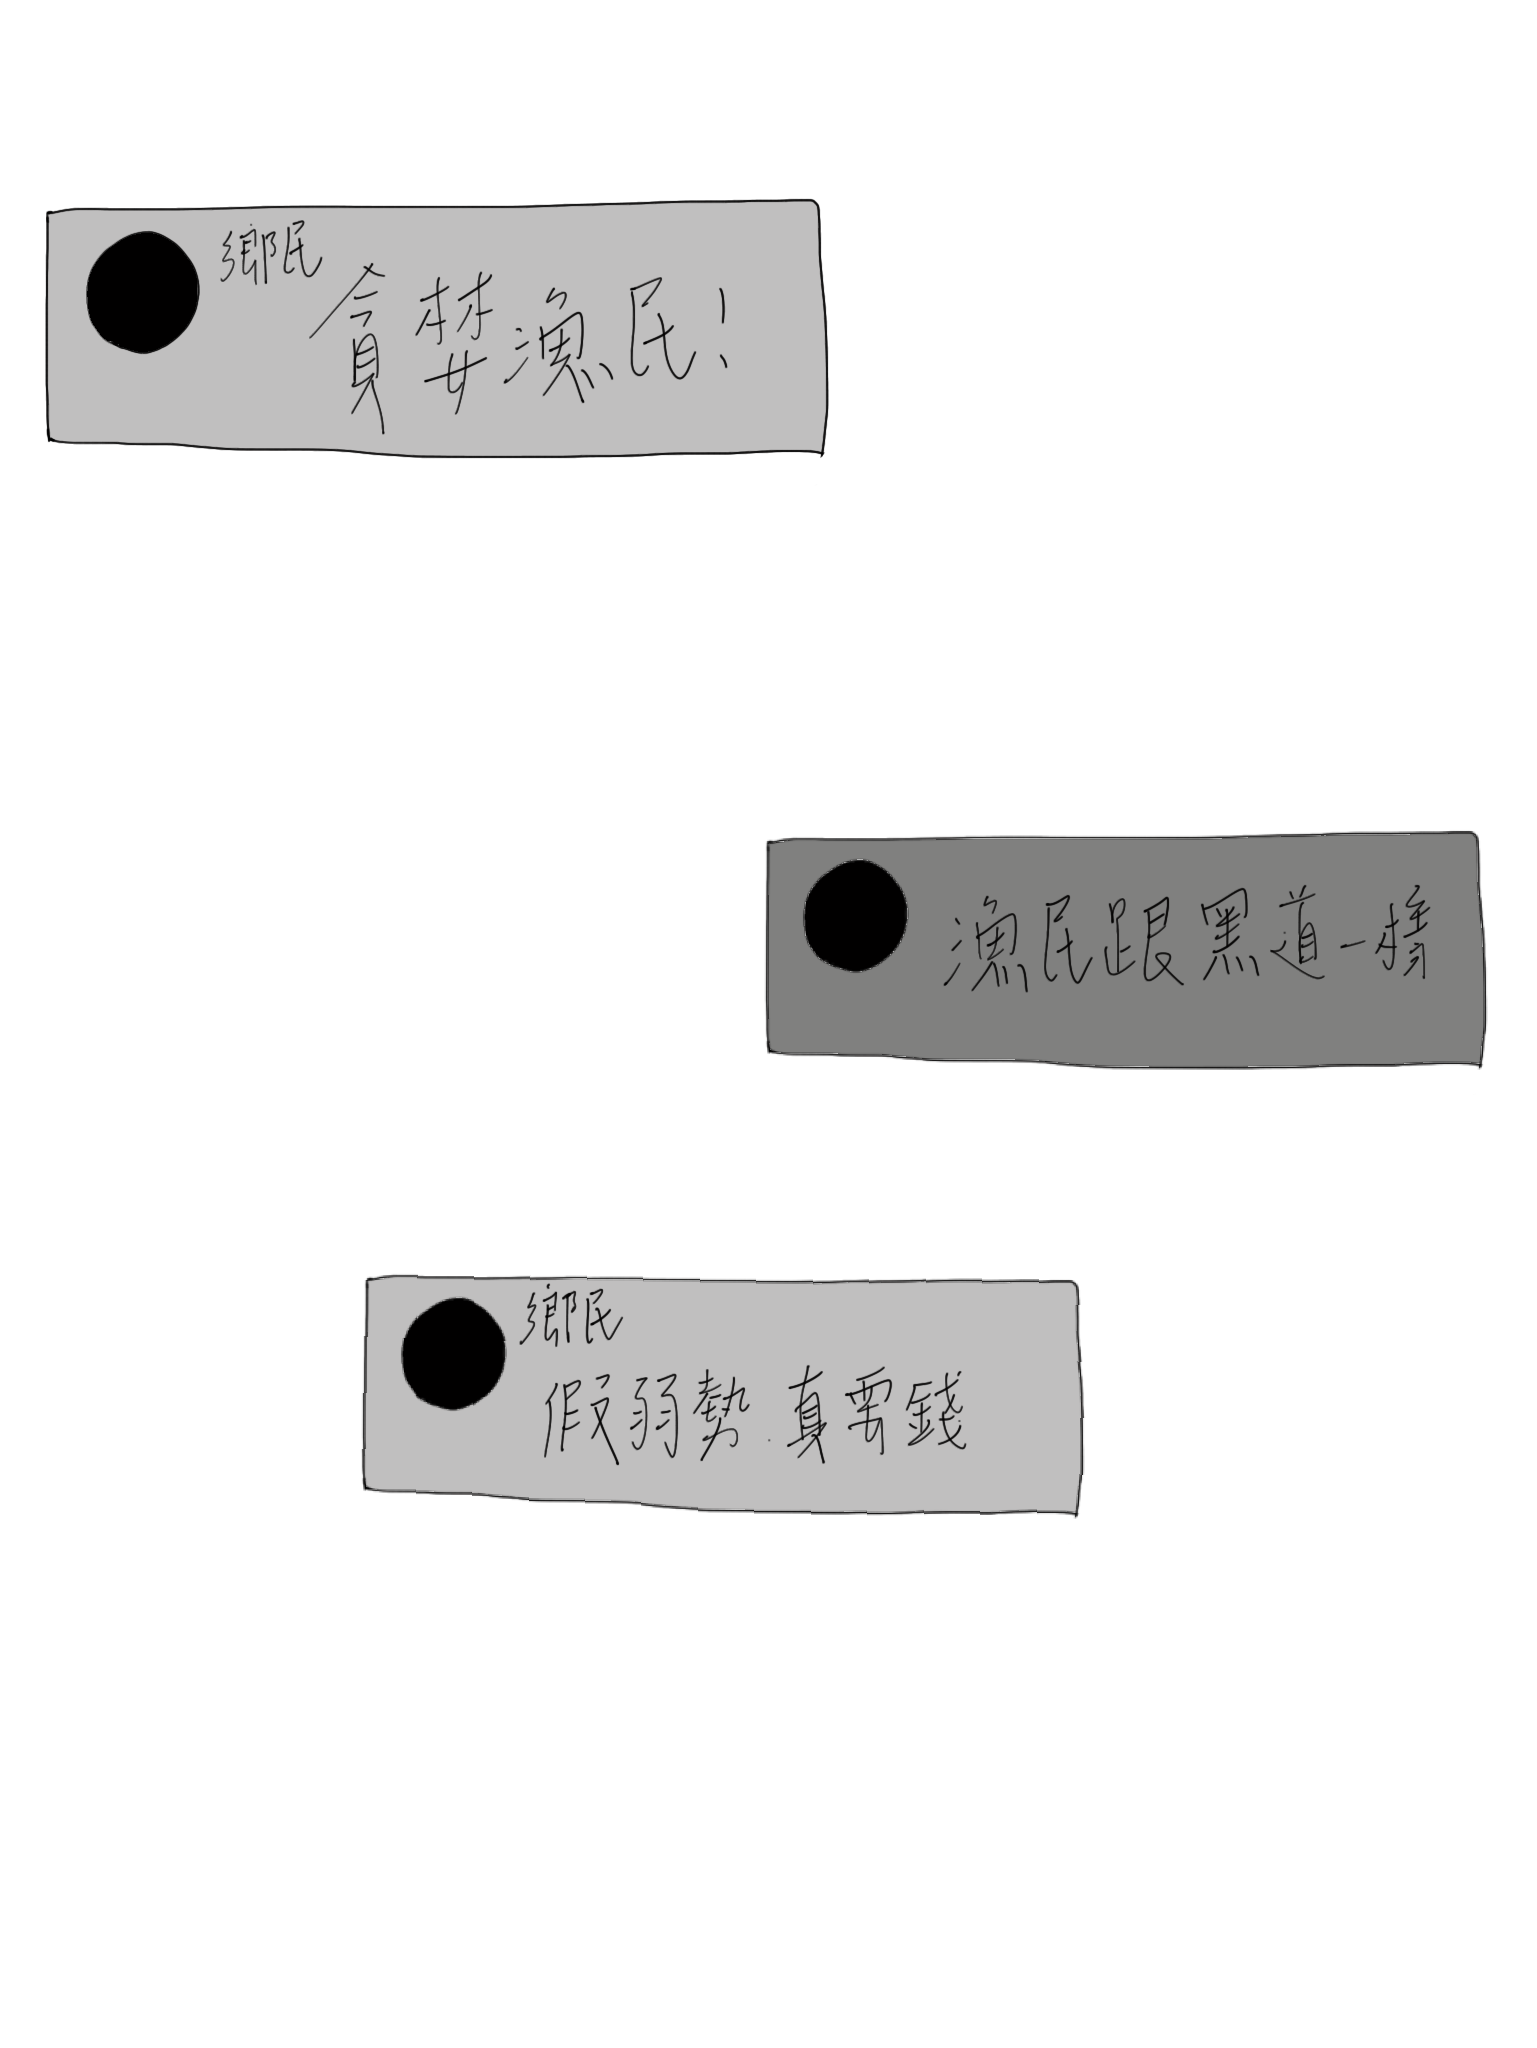 鄉民
貪婪漁民!
漁民跟黑道一樣
鄉民
假弱勢.真要錢